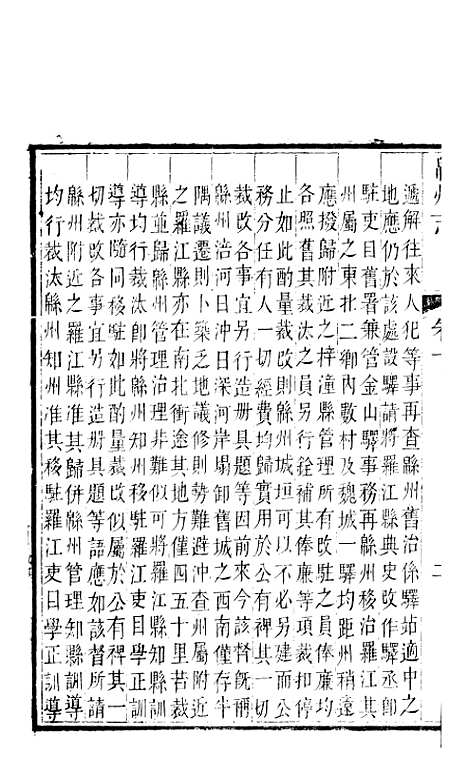 遞解往來人犯等事再查緜州舊治係驛站適中之
地應仍於該處設驛請將羅江縣典史改作驛丞卽
駐吏目舊署兼管金山驛事務再緜州移治羅江其
州屬之東北二鄉內數村及魏城一驛均距州稍遠
應撥歸附近之梓潼縣管理所有改駐之員俸廉均
各照舊其裁汰之員另行銓補其俸廉等項裁扣停
止如此酌量裁改則緜州城垣可以不必另建而公
務分任有人一切經費均歸實用於公有裨其一切
裁改各事宜另行造册具題等因前來今該督旣稱
緜州涪河日沖日深河岸塌卸舊城之西南僅存牛
隅議遷則卜築乏地議修則勢難避沖查州屬附近
之羅江縣亦在南北衝途其地方僅四五十里若裁
縣並歸緜州管理治理非難似可將羅江縣知縣訓
導均行裁汰卽將緜州知州移駐羅江吏目學正訓
導亦隨同移駐如此酌量裁改似屬於公有裨其一
切裁改各事宜另行造册具題等語應如該督所請
緜州附近之羅江縣准其歸併緜州管理知縣訓導
均行裁汰緜州知州准其移駐羅江吏目學正訓導